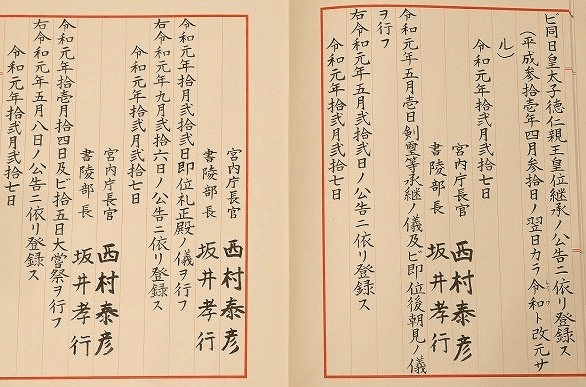 ビ同日皇太子徳仁親王皇位継承ノ公告ニ依リ登録ス
(平成参拾壱年四月参拾日ノ翌日カラ令和ト改元サ
ル)
令和元年拾弐月弐拾七日
宮内庁長官 西村泰彦
書陵部長 坂井孝行
令和元年五月壱日剣璽等承継ノ儀及ビ即位後朝見ノ儀
ヲ行フ
右令和元年五月弐日ノ公告ニ依リ登録ス
令和元年拾弐月弐拾七日
宮内庁長官 西村泰彦
書陵部長 坂井孝行
令和元年拾月弐拾弐日即位礼正殿ノ儀ヲ行フ
右令和元年九月弐拾六日ノ公告ニ依リ登録ス
令和元年拾弐月弐拾七日
宮内庁長官 西村泰彦
書陵部長 坂井孝行
令和元年拾壱月拾四日及ビ拾五日大嘗祭ヲ行フ
右令和元年五月八日ノ公告ニ依リ登録ス
令和元年拾弐月弐拾七日